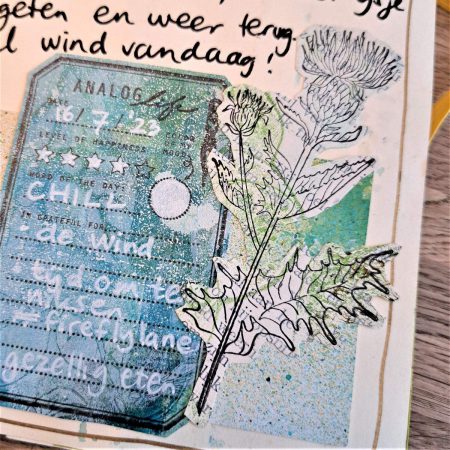 geten en weer terug.
wind vandaag!
ANALOG life
DATE
16/7/'23
LEVEL OF HAPPINESS
WORD OF THE DAY:
CHILL
I'M GRATEFUL FOR:
• de wind
• tijd om te
niksen
#fireflylane
gezellig eten